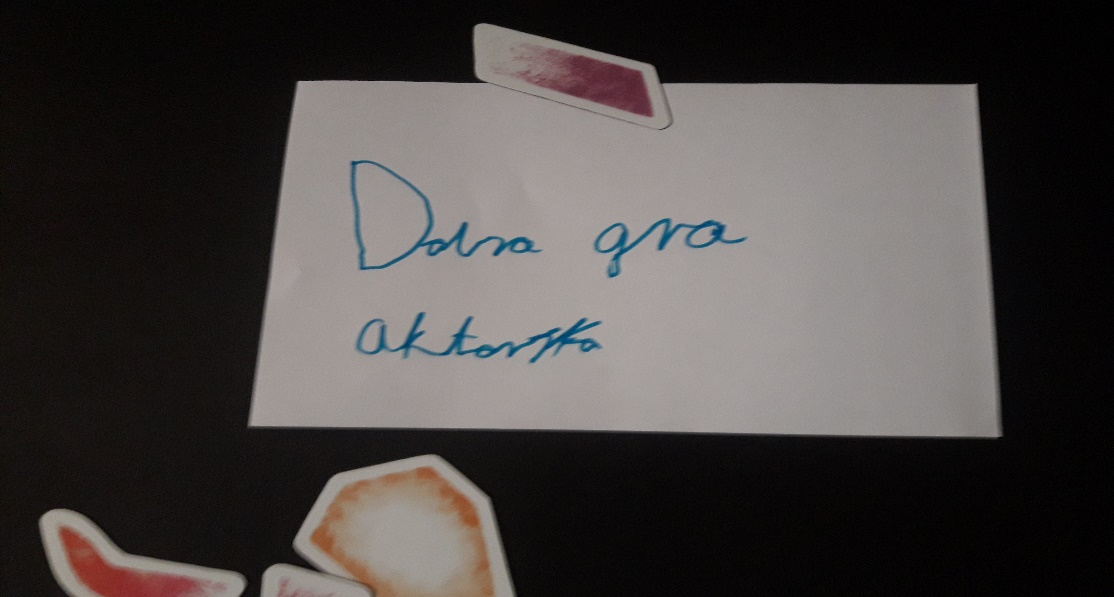 Dobra gra
aktorska